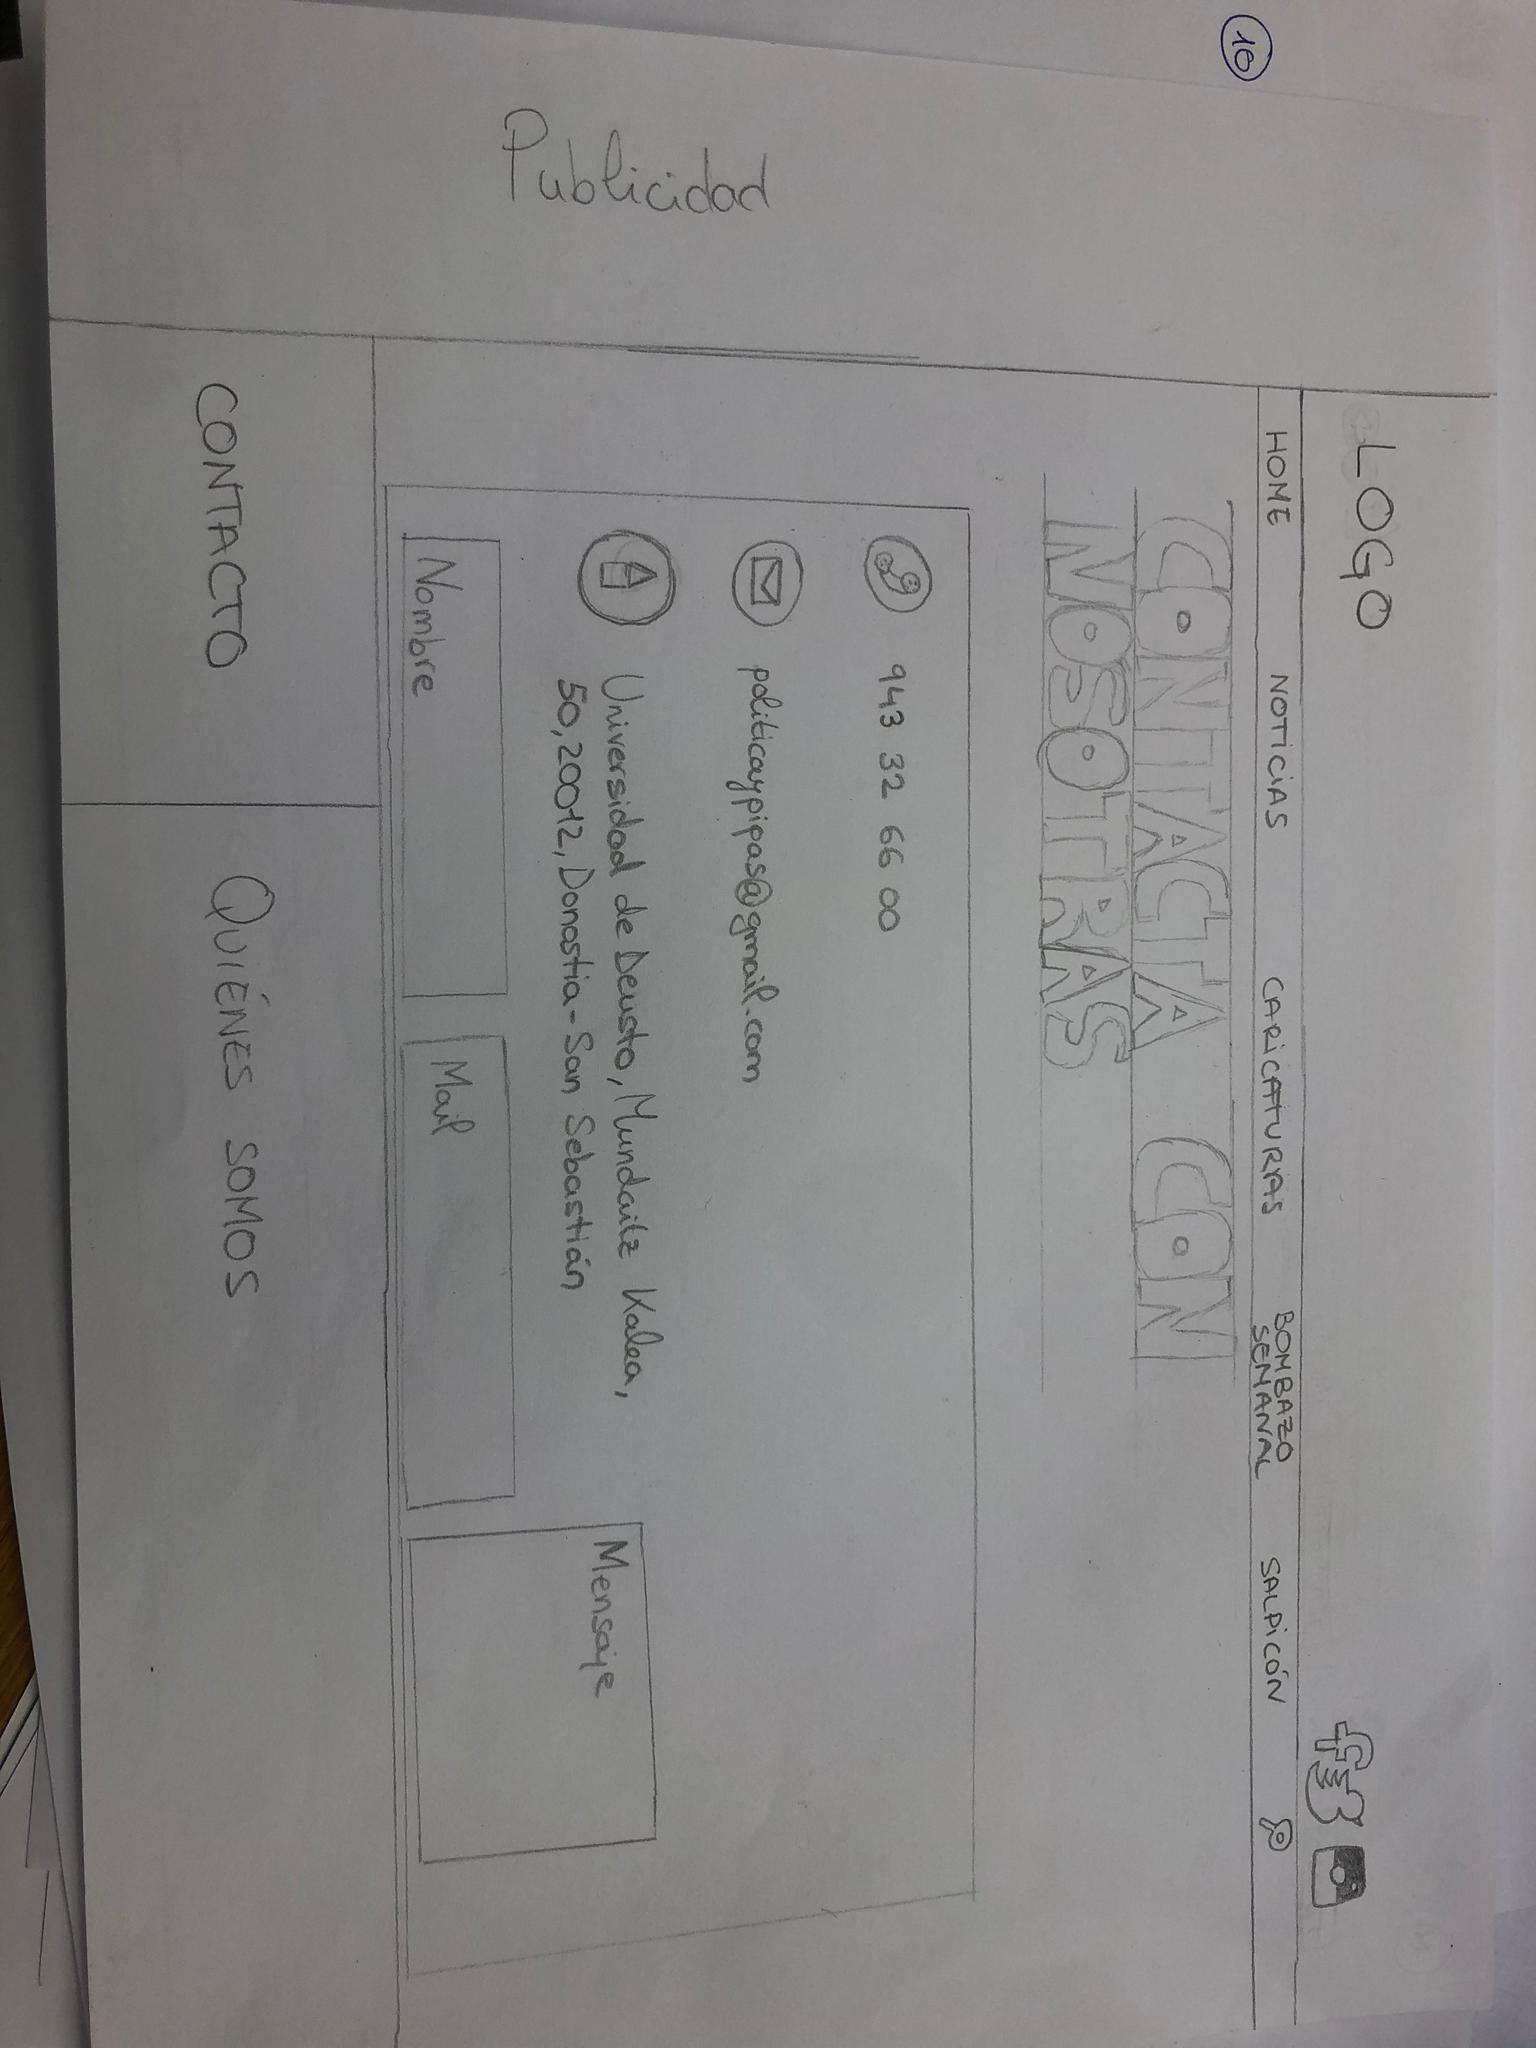 LOGO
HOME NOTICIAS CARICATURAS BOMBAZO SEMANAL SALPICÓN
10
CONTACTA CON
NOSOTRAS
943 32 66 00
politicaypipas@gmail.com
Universidad de Deusto, Mundaitz Kalea,
50, 20012, Donostia - San Sebastián
Mensaje
Nombre
Mail
Publicidad
CONTACTO
QUIÉNES SOMOS